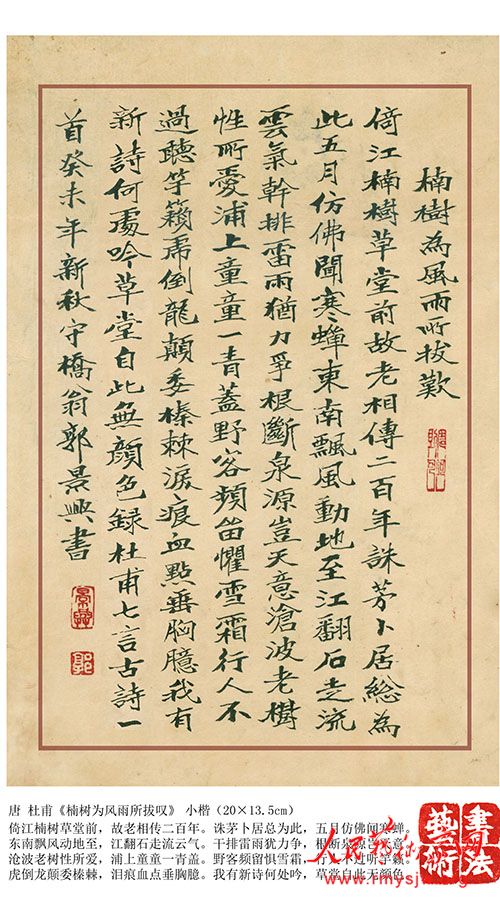 楠樹為風雨所拔歎
倚江楠樹草堂前故老相傳二百年誅茅卜居総為
此五月仿佛聞寒蟬東南飄風動地至江翻石走流
雲氣幹排雷雨猶力爭根斷泉源豈天意滄波老樹
性所愛浦上童童一青蓋野客頻留懼雪霜行人不
過聽竽籟虎倒龍顛委榛棘淚痕血點垂胸臆我有
新詩何處吟草堂自此無顏色録杜甫七言古詩一
首癸未年新秋守橋翁郭景興書
景興
郭
唐 杜甫《楠树为风雨所拔叹》 小楷（20×13.5cm）
倚江楠树草堂前，故老相传二百年。诛茅卜居总为此，五月仿佛闻寒蝉。
东南飘风动地至，江翻石走流云气。干排雷雨犹力争，根断泉源岂天意。
沧波老树性所爱，浦上童童一青盖。野客频留惧雪霜，行人不过听竽籁。
虎倒龙颠委榛棘，泪痕血点垂胸臆。我有新诗何处吟，草堂自此无颜色。
書法
藝術
www.rmysj